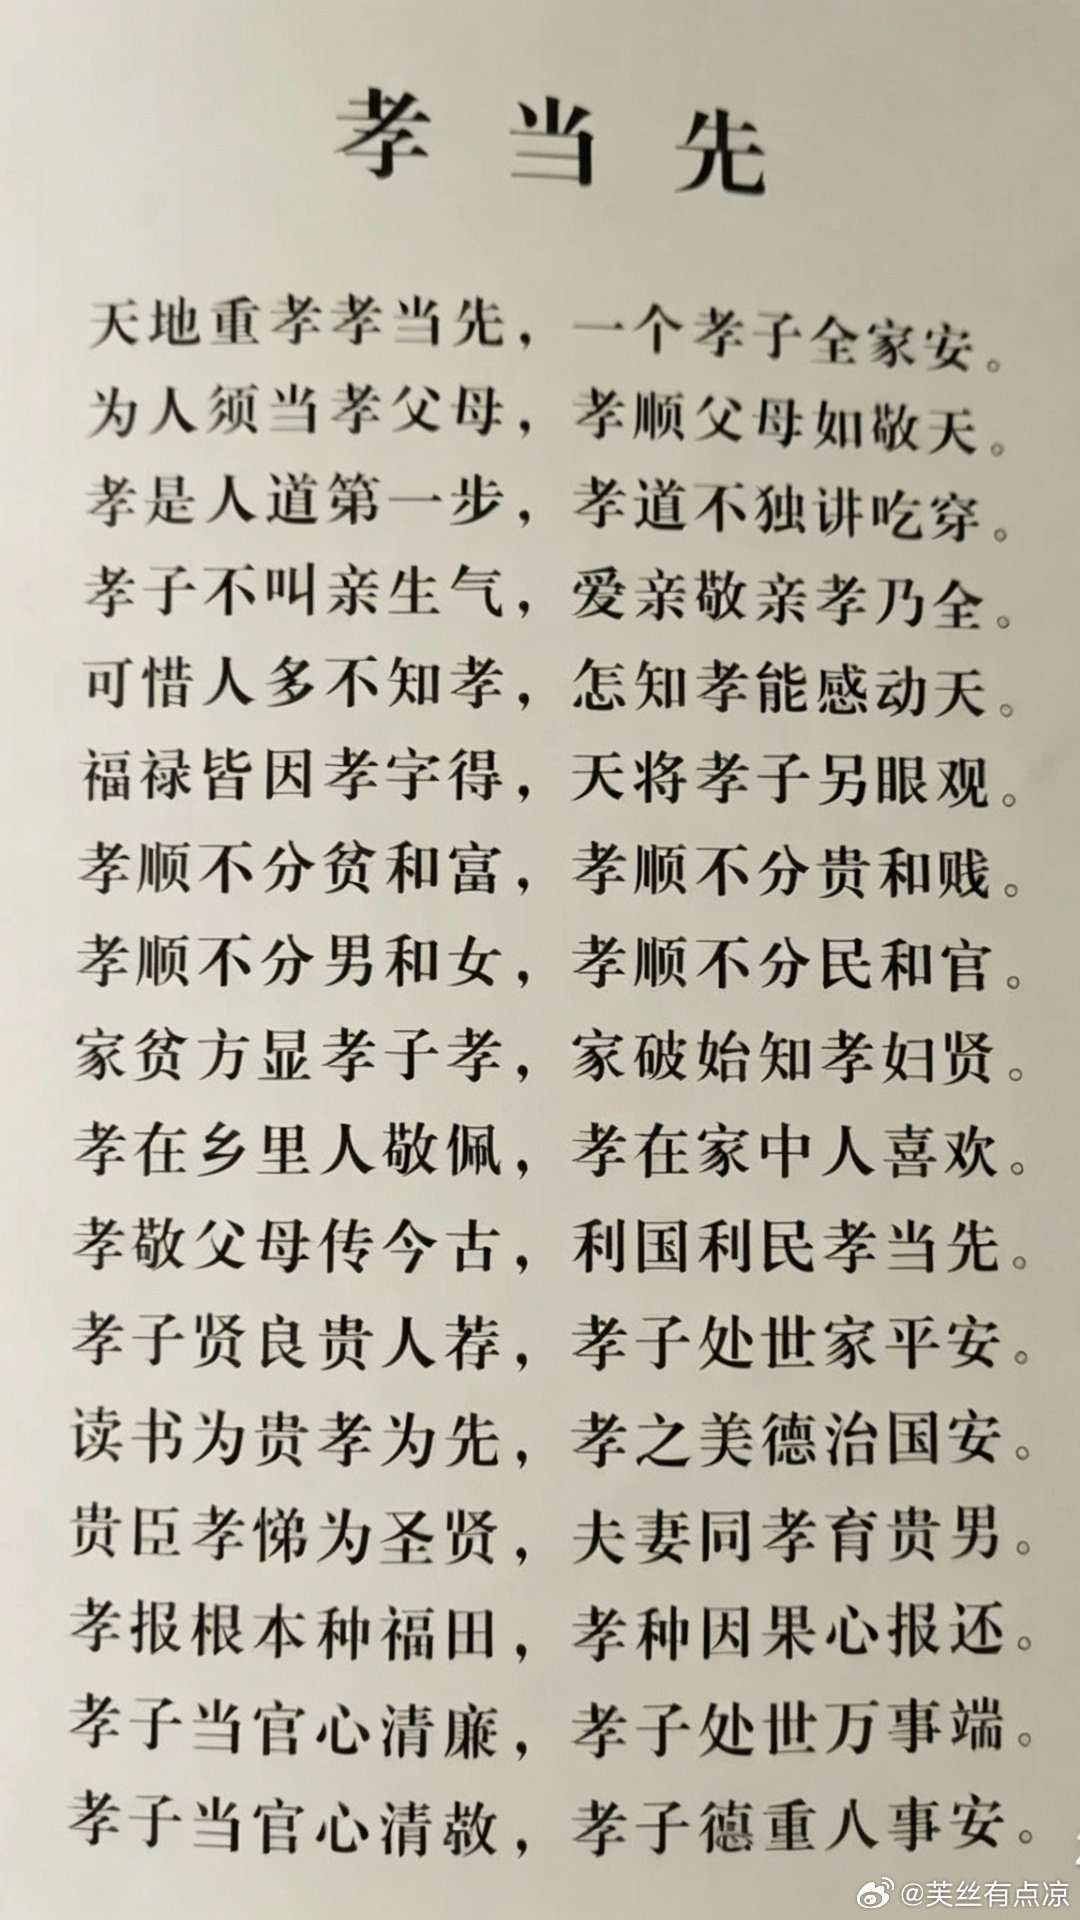 孝当先
天地重孝孝当先，一个孝子全家安。
为人须当孝父母，孝顺父母如敬天。
孝是人道第一步，孝道不独讲吃穿。
孝子不叫亲生气，爱亲敬亲孝乃全。
可惜人多不知孝，怎知孝能感动天。
福禄皆因孝字得，天将孝子另眼观。
孝顺不分贫和富，孝顺不分贵和贱。
孝顺不分男和女，孝顺不分民和官。
家贫方显孝子孝，家破始知孝妇贤。
孝在乡里人敬佩，孝在家中人喜欢。
孝敬父母传今古，利国利民孝当先。
孝子贤良贵人荐，孝子处世家平安。
读书为贵孝为先，孝之美德治国安。
贵臣孝悌为圣贤，夫妻同孝育贵男。
孝报根本种福田，孝种因果心报还。
孝子当官心清廉，孝子处世万事端。
孝子当官心清，孝子德重人事安。
@芙丝有点凉